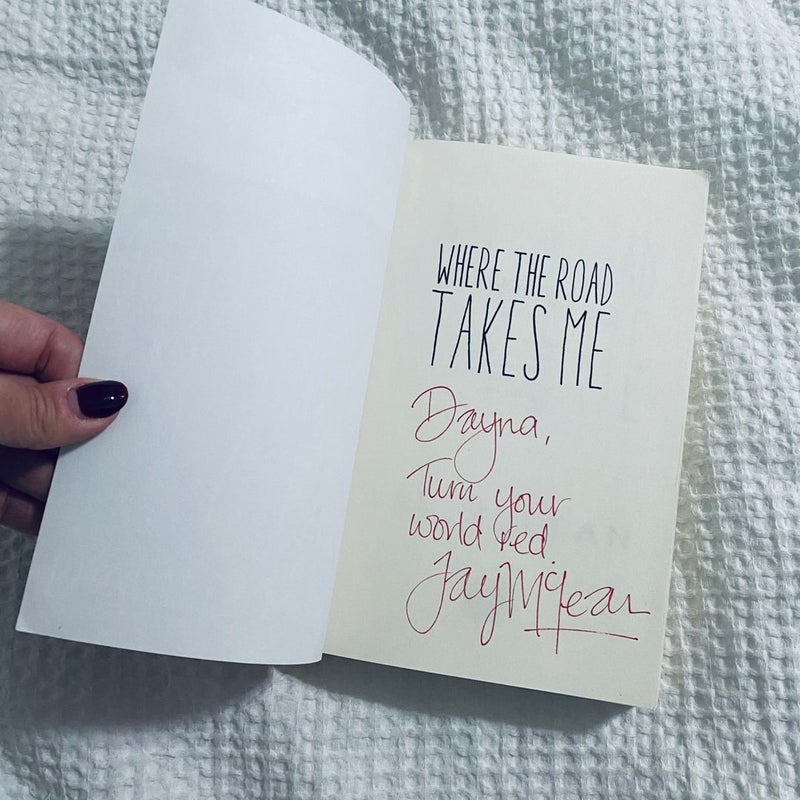 WHERE THE ROAD
TAKES ME
Dayna,
Turn your
world red.
Jay McLean